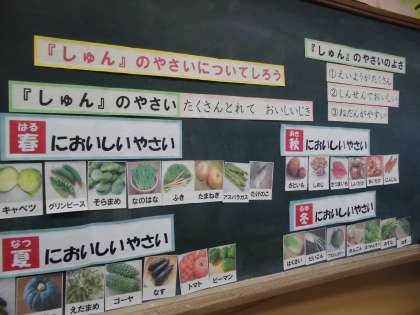 『しゅん』のやさいについてしろう
『しゅん』のやさい たくさんとれて おいしいじき
はる
春においしいやさい
キャベツ グリンピース そらまめ なのはな ふき たまねぎ アスパラガス たけのこ
なつ
夏においしいやさい
えだまめ ゴーヤ なす トマト ピーマン
『しゅん』のやさいのよさ
①えいようがたくさん
②しんせんでおいしい
③ねだんがやすい
あき
秋においしいやさい
さといも しめじ さつまいも しいたけ にんじん
ふゆ
冬においしいやさい
はくさい だいこん ブロッコリー